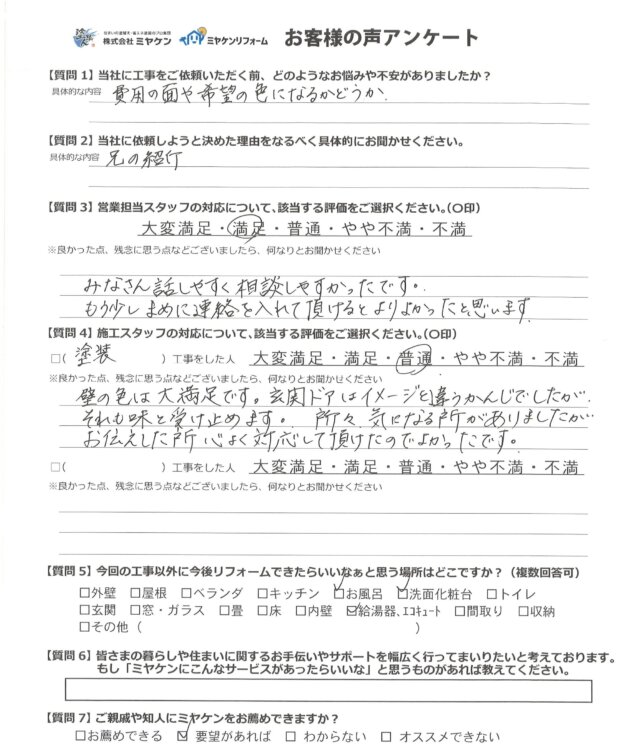 株式会社 ミヤケン ミヤケンリフォーム お客様の声アンケート
【質問 1】当社に工事をご依頼いただく前、どのようなお悩みや不安がありましたか?
具体的な内容 費用の面や希望の色になるかどうか.
【質問 2】当社に依頼しようと決めた理由をなるべく具体的にお聞かせください。
具体的な内容 兄の紹介
【質問 3】営業担当スタッフの対応について、該当する評価をご選択ください。(〇印)
大変満足・満足・普通・やや不満・不満
※良かった点、残念に思う点などございましたら、何なりとお聞かせください
みなさん話しやすく相談しやすかったです。
もう少しまめに連絡を入れて頂けるとよりよかったと思います
【質問 4】施工スタッフの対応について、該当する評価をご選択ください。(〇印)
□( 塗装 )工事をした人 大変満足・満足・普通・やや不満・不満
※良かった点、残念に思う点などございましたら、何なりとお聞かせください
壁の色は大満足です。玄関ドアはイメージと違うかんじでしたが、
それも味と受け止めます。 所々、気になる所がありましたが
お伝えした所 心よく対応して頂けたのでよかったです。
□( )工事をした人 大変満足・満足・普通・やや不満・不満
※良かった点、残念に思う点などございましたら、何なりとお聞かせください
【質問 5】今回の工事以外に今後リフォームできたらいいなぁと思う場所はどこですか?(複数回答可)
□外壁 □屋根 □ベランダ □キッチン ☑お風呂 ☑洗面化粧台 □トイレ
□玄関 □窓・ガラス □畳 □床 □内壁 ☑給湯器、エコキュート □間取り □収納
□その他( )
【質問 6】皆さまの暮らしや住まいに関するお手伝いやサポートを幅広く行ってまいりたいと考えております。
もし「ミヤケンにこんなサービスがあったらいいな」と思うものがあれば教えてください。
【質問 7】ご親戚や知人にミヤケンをお薦めできますか?
□お薦めできる ☑ 要望があれば □ わからない □ オススメできない